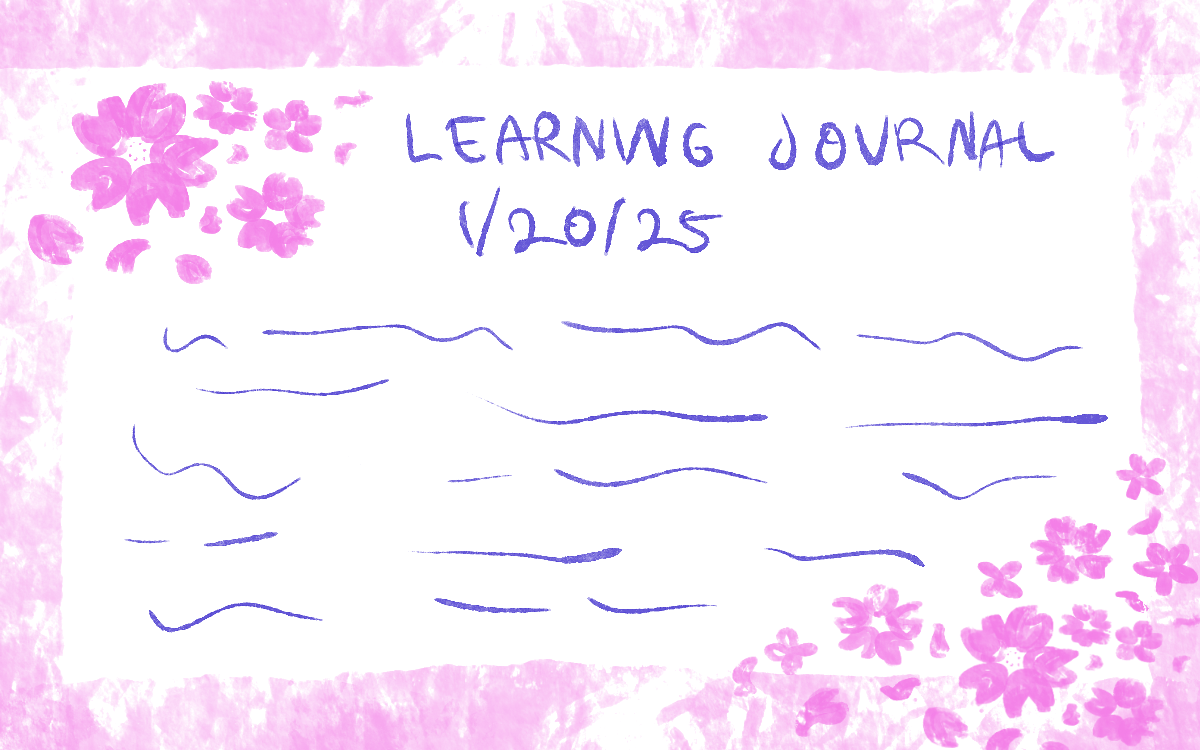 LEARNING JOURNAL
1/20/25